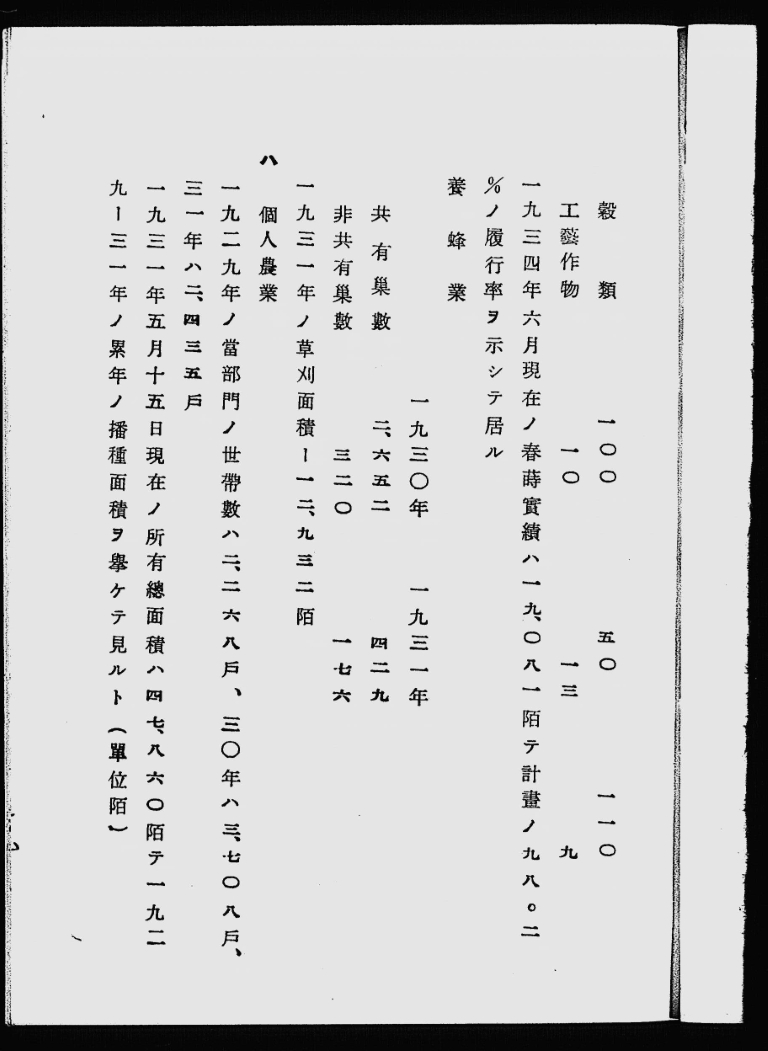 穀類 一〇〇 五〇 一一〇
工藝作物 一〇 一三 九
一九三四年六月現在ノ春蒔實績ハ一九、〇八一陌テ計畫ノ九八。二
%ノ履行率ヲ示シテ居ル
養蜂業
一九三〇年 一九三一年
共有巢數 二、六五二 四二九
非共有巢數 三二〇 一七六
一九三一年ノ草刈面積ー一二、九三二陌
ハ 個人農業
一九二九年ノ當部門ノ世帶數ハ二、二六八戶、三〇年ハ三、七〇八戶、
三一年ハ二、四三五戶
一九三一年五月十五日現在ノ所有總面積ハ四七、八六〇陌テ一九二
九ー三一年ノ累年ノ播種面積ヲ擧ケテ見ルト(單位陌)